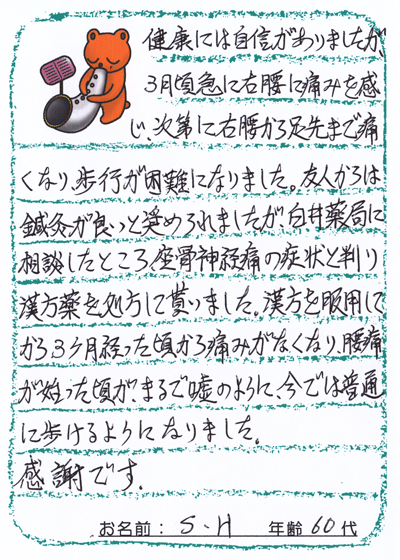 健康には自信がありましたが、
3月頃急に右腰に痛みを感
じ、次第に右腰から足先まで痛
くなり、歩行が困難になりました。友人からは
鍼灸が良いと奨められましたが白井薬局に
相談したところ座骨神経痛の症状と判り
漢方薬を処方して貰いました。漢方を服用して
から3ヶ月経った頃から痛みがなくなり、腰痛
が始った頃が、まるで嘘のように、今では普通
に歩けるようになりました。
感謝です。
お名前： S・H 年齢 60代